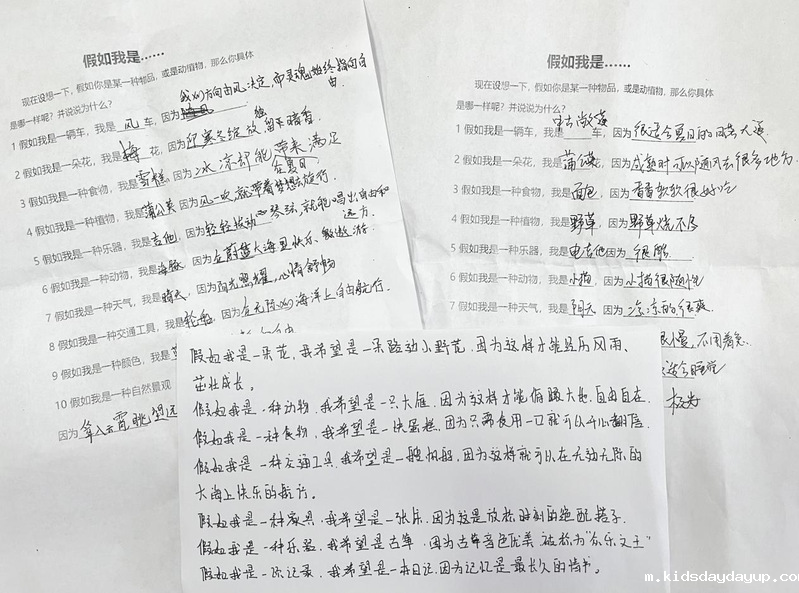 假如我是……
现在设想一下，假如你是某一种物品，或是动植物，那么你具体
是哪一样呢？并说说为什么？
我的方向由风决定，而灵魂始终指向自
由.
1 假如我是一辆车，我是 风 车，因为
2 假如我是一朵花，我是 梅 花，因为迎寒冬绽放 独留下暗香
3 假如我是一种食物，我是雪糕，因为冰凉却能带来满足
4 假如我是一种植物，我是蒲公英 因为风一吹就带着梦想去旅行.
5 假如我是一种乐器，我是吉他，因为轻轻拨动琴弦，就能唱出自由和
远方.
6 假如我是一种动物，我是海豚，因为在蔚蓝大海里快乐 遨游.
7 假如我是一种天气，我是晴天，因为阳光照耀，心情舒畅
8 假如我是一种交通工具，我是轮船，因为在无际的海洋上自由航行.
9 假如我是一种颜色，我是
10 假如我是一种自然景观
因为 耸入云霄眺望远
假如我是……
现在设想一下，假如你是某一种物品，或是动植物，那么你具体
是哪一样呢？并说说为什么？
1 假如我是一辆车，我是 电动敞篷 车，因为很适合夏日的风景 天
2 假如我是一朵花，我是 蒲公英，因为成熟时可以随风去很多地方.
3 假如我是一种食物，我是 面包，因为 香香软软很好吃
4 假如我是一种植物，我是 野草，因为 野草烧不尽
5 假如我是一种乐器，我是电吉他因为 很酷
6 假如我是一种动物，我是 小猫，因为 小猫很随性
7 假如我是一种天气，我是 阴天，因为 凉凉的很爽
很慢，不用着急.
适合睡觉
极光
假如我是一朵花，我希望是一朵路边小野花，因为这样才能经历风雨、
茁壮成长。
假如我是一种动物，我希望是一只大雁，因为这样才能俯瞰大地，自由自在.
假如我是一种食物，我希望是一块蛋糕，因为只要食用一口就可以开心翻倍.
假如我是一种交通工具，我希望是一艘帆船，因为这样就可以在无边无际的
大海上快乐的航行。
假如我是一种家具，我希望是一张床，因为这是放松时刻的绝配搭子.
假如我是一种乐器，我希望是古筝，因为古筝音色优美 被称为“众乐之王”
假如我是一际记录，我希望是一本日记，因为记忆是最长久的情书。
m.kidsdaydayup.com